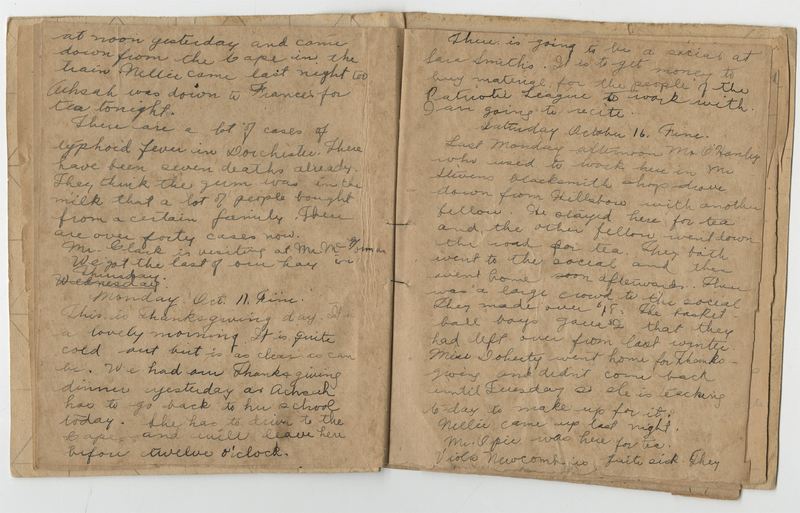 at noon yesterday and came
down from the Cape in the
train. Nellie came last night too
Achsah was down to Frances for
tea tonight.
There are a lot of cases of
typhoid fever in Dorchester. There
have been seven deaths already.
They think the gurm was in the
milk that a lot of people bought
from a certain family. There
are over forty cases now.
Mr. Clark is visiting at Mr. Mc Gorman
We got the last of our hay in
Thursday.
Wednesday
Monday. Oct. 11. Fine.
This is Thanksgiving day. It is
a lovely morning. It is quite
cold out but is as clear as can
be. We had our Thanksgiving
dinner yesterday as Achsah
has to go back to her school
today. She has to drive to the
Cape and will leave here
before twelve o'clock.
There is going to be a social at
Sara Smiths. It is to get money to
buy material for the people of the
Patriotic League to work with.
I am going to recite.
Saturday October 16. Fine.
Last Monday afternoon Mr. O'Hanley
who used to work here in Mr
Stevens blacksmith shop drove
down from Hillsboro with another
fellow. He stayed here for tea
and the other fellow went down
the road for tea. They both
went to the social and then
went home soon afterwards. There
was a large crowd to the social
They made over $18. The basket-
ball boys gave $2 that they
had left over from last winter.
Miss Doherty went home for Thanks-
giving and didn't come back
until Tuesday so she is teaching
to-day to make up for it.
Nellie came up last night.
Mr. Opie was here for tea.
Viola Newcomb is quite sick. They